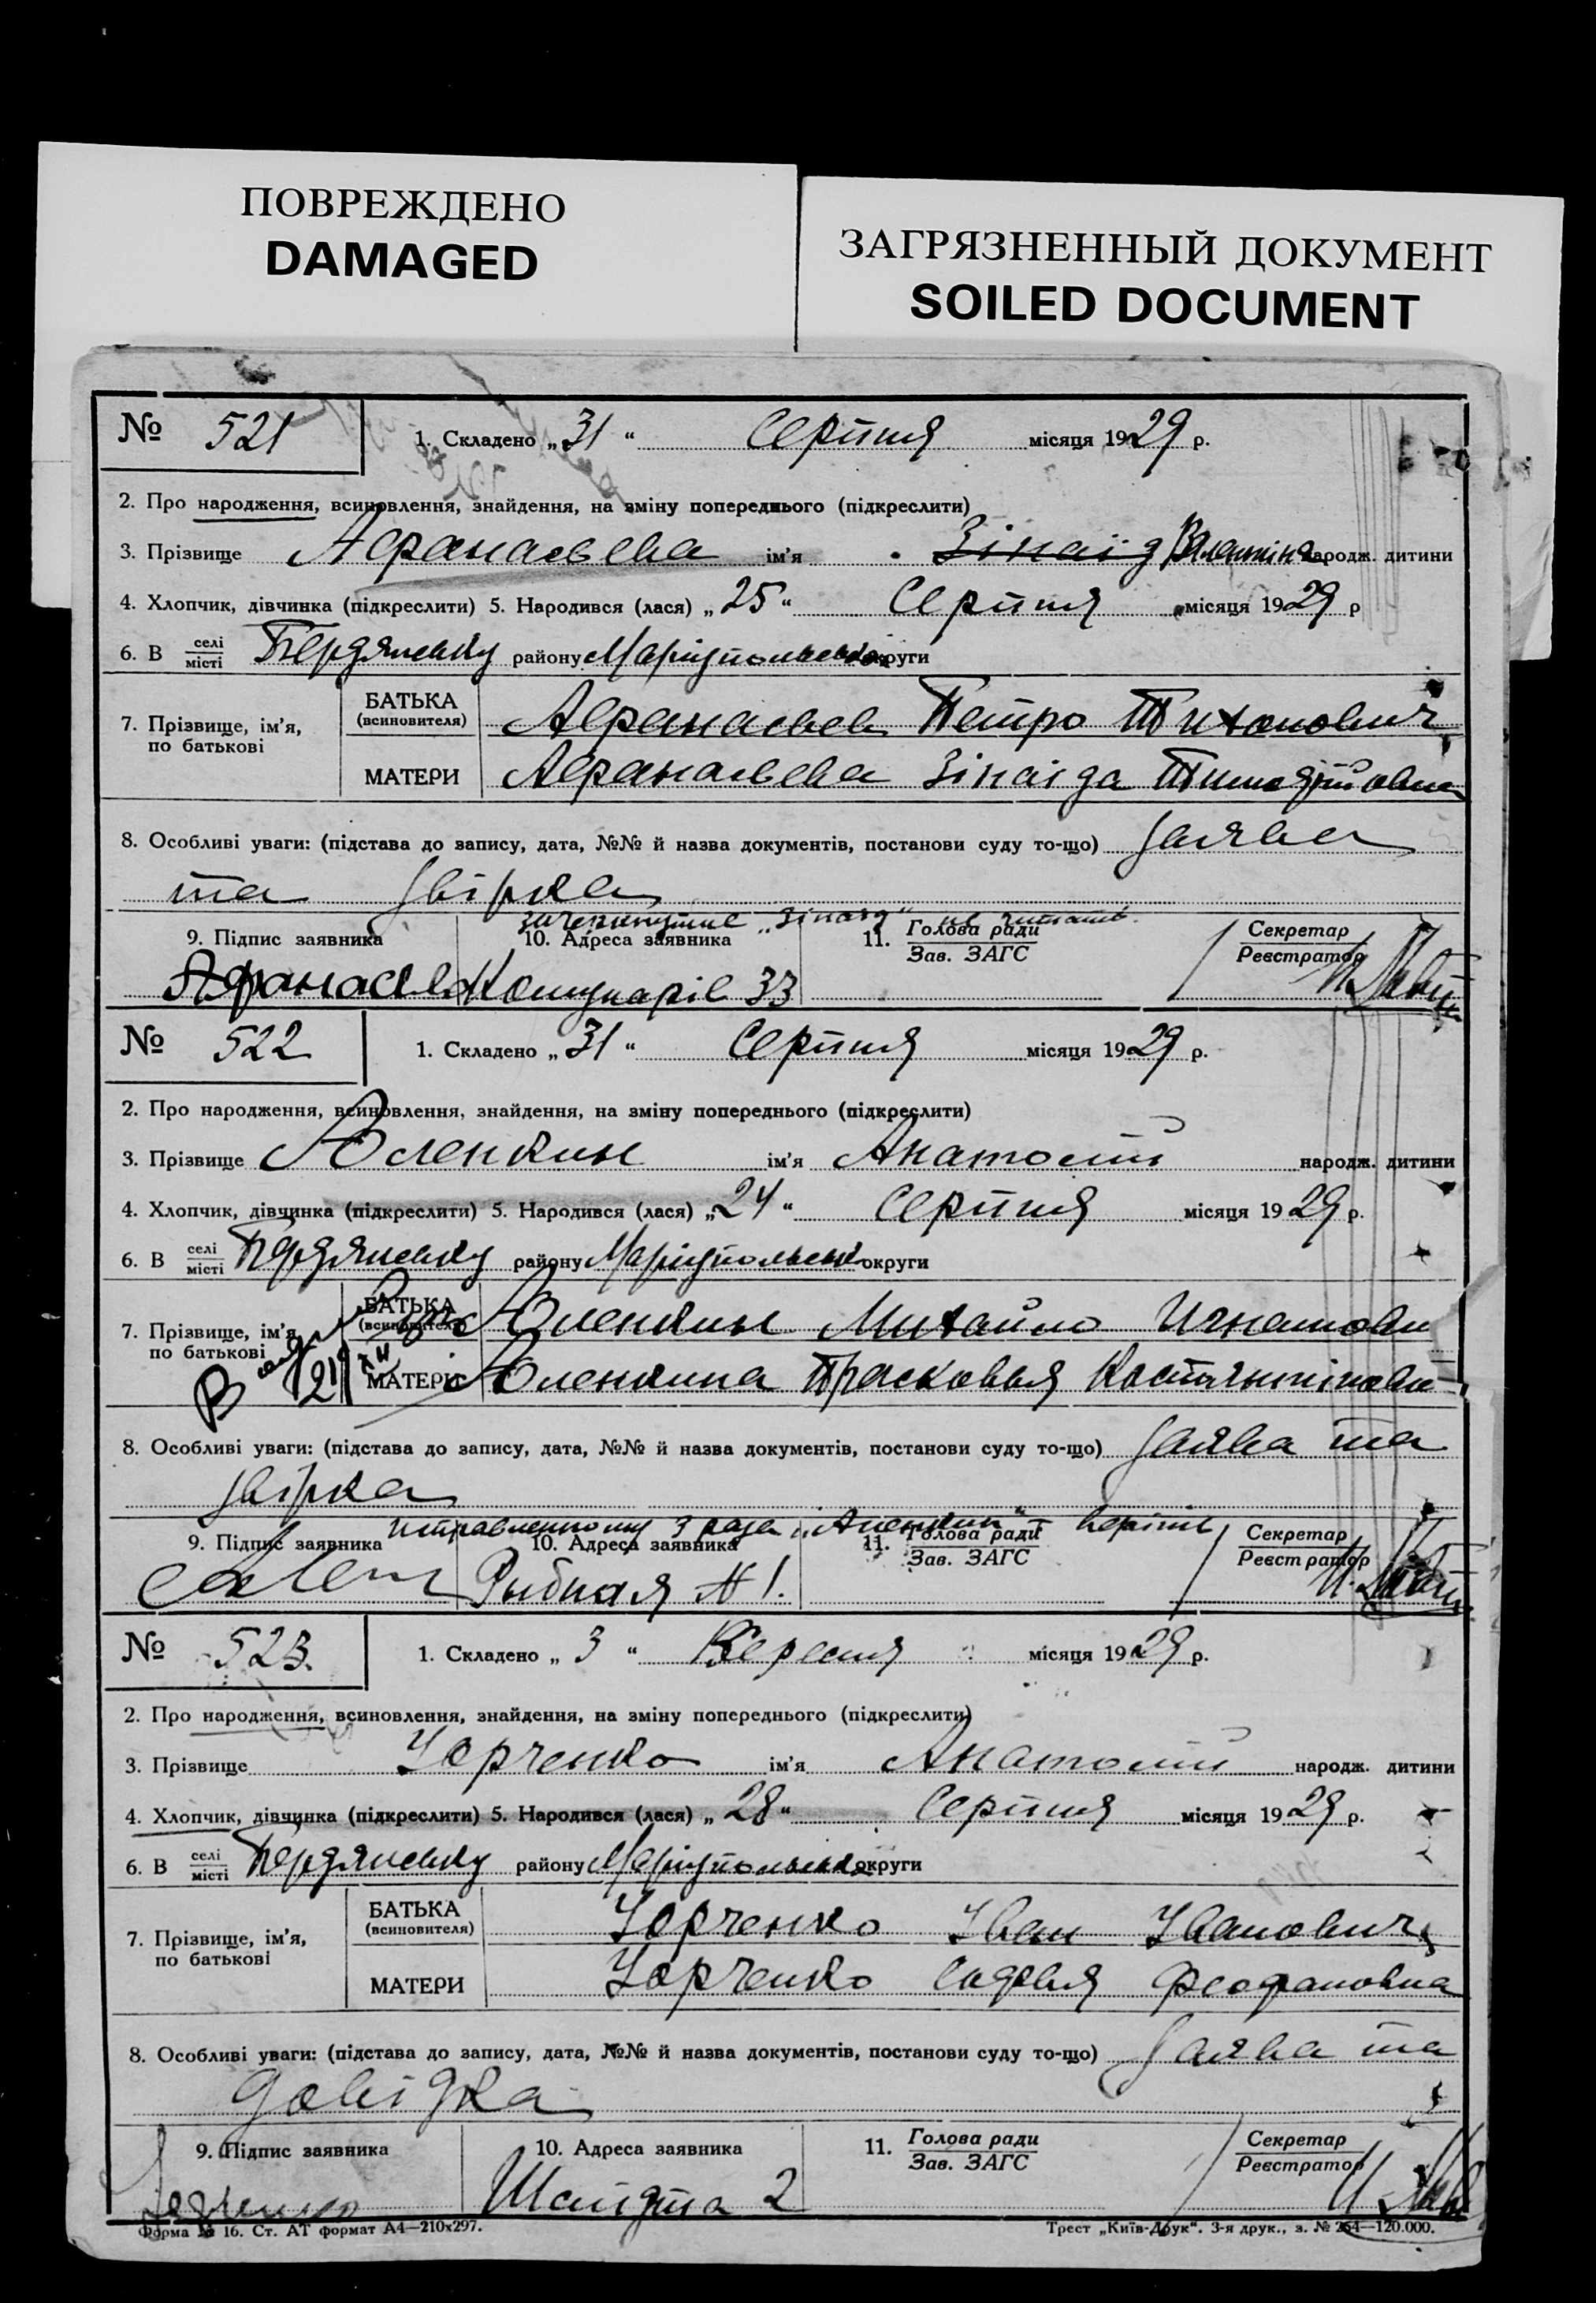 ПОВРЕЖДЕНО
DAMAGED
ЗАГРЯЗНЕННЫЙ ДОКУМЕНТ
SOILED DOCUMENT
№ 521 1. Складено „31“ Серпня місяця 1929 р.
2. Про народження, всиновлення, знайдення, на зміну попереднього (підкреслити)
3. Прізвище Афанасьева ім'я Зінаїд Валентина народж. дитини
4. Хлопчик, дівчинка (підкреслити) 5. Народився (лася) „25“ Серпня місяця 1929 р
6. В селі місті Бердянську району Маріупольськ округи
7. Прізвище, ім'я, по батькові
БАТЬКА (всиновителя) Афанасьев Петро Тихонович
МАТЕРИ Афанасьева Зінаіда
8. Особливі уваги: (підстава до запису, дата, №№ й назва документів, постанови суду то-що) Заява
та звірка
зачеркнутие „Зінаїд“ не читать
9. Підпис заявника 10. Адреса заявника 11. Голова ради Зав. ЗАГС Секретар Реєстратор
Комунарів 33
№ 522 1. Складено „31“ Серпня місяця 1929 р.
2. Про народження, всиновлення, знайдення, на зміну попереднього (підкреслити)
3. Прізвище ім'я Анатолій народж. дитини
4. Хлопчик, дівчинка (підкреслити) 5. Народився (лася) „24“ Серпня місяця 1929 р.
6. В селі місті Бердянську району Маріупольськ округи
7. Прізвище, ім'я, по батькові
БАТЬКА (всиновителя) Михайло Игнатови
МАТЕРИ Прасковья Костянтінови
8. Особливі уваги: (підстава до запису, дата, №№ й назва документів, постанови суду то-що) Заява та
звірка
9. Підпис заявника 10. Адреса заявника 11. Голова ради Зав. ЗАГС Секретар Реєстратор
Рыбная № 1.
№ 523. 1. Складено „3“ Вересня місяця 1929 р.
2. Про народження, всиновлення, знайдення, на зміну попереднього (підкреслити)
3. Прізвище Юрченко ім'я Анатолій народж. дитини
4. Хлопчик, дівчинка (підкреслити) 5. Народився (лася) „28“ Серпня місяця 1929 р.
6. В селі місті Бердянську району Маріупольськ округи
7. Прізвище, ім'я, по батькові
БАТЬКА (всиновителя) Юрченко Іван Іванович
МАТЕРИ Юрченко Софья Феофановна
8. Особливі уваги: (підстава до запису, дата, №№ й назва документів, постанови суду то-що) Заява та
довідка
9. Підпис заявника 10. Адреса заявника 11. Голова ради Зав. ЗАГС Секретар Реєстратор
Шмідта 2
Форма № 16. Ст. АТ формат А4—210х297. Трест „Київ-Друк“. 3-я друк., з. № 264—120.000.